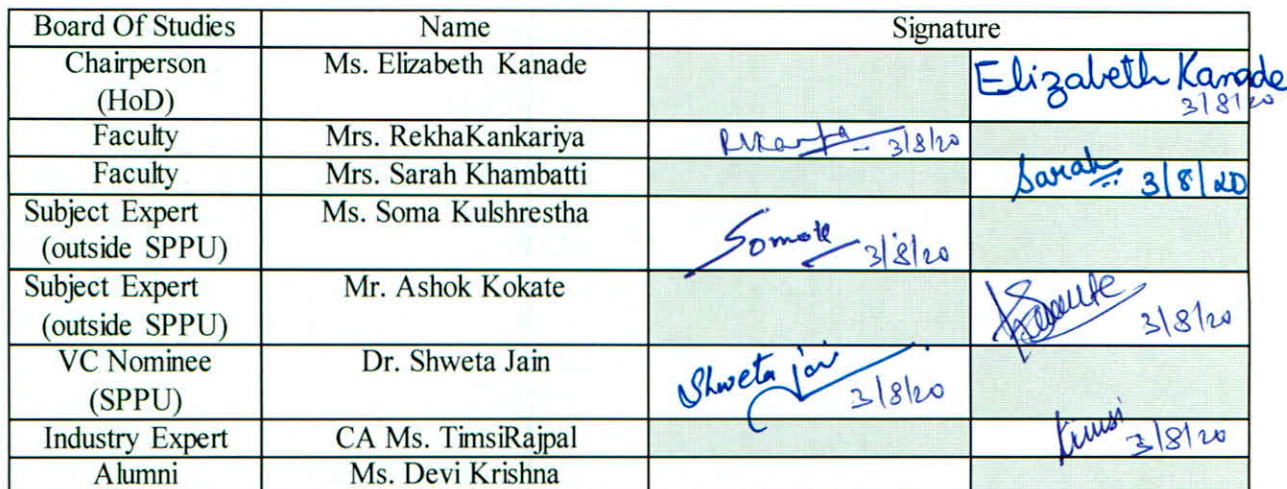 Board Of Studies Name Signature
Chairperson Ms. Elizabeth Kanade Elizabeth Kanade
(HoD) 3/8/20
Faculty Mrs. RekhaKankariya 3/8/20
Faculty Mrs. Sarah Khambatti Sarah 3/8/20
Subject Expert Ms. Soma Kulshrestha
(outside SPPU) Somak 3/8/20
Subject Expert Mr. Ashok Kokate
(outside SPPU) 3/8/20
VC Nominee Dr. Shweta Jain Shweta Jain
(SPPU) 3/8/20
Industry Expert CA Ms. TimsiRajpal Timsi 3/8/20
Alumni Ms. Devi Krishna